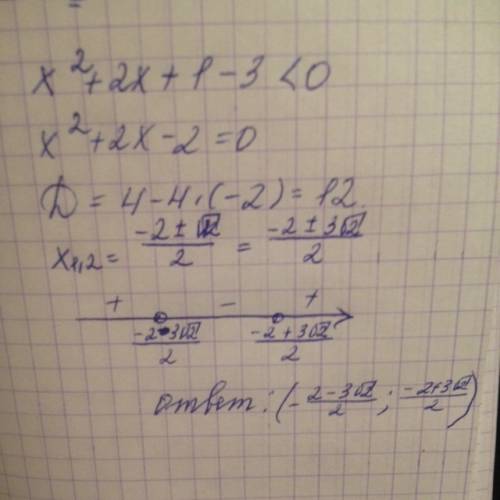 x² + 2x + 1 - 3 < 0
x² + 2x - 2 = 0
D = 4 - 4 · (-2) = 12
x₁,₂ = (-2 ± √12)/2 = (-2 ± 3√2)/2
+ - +
(-2 - 3√2)/2 (-2 + 3√2)/2
ответ: (- (2 - 3√2)/2 ; (-2 + 3√2)/2)